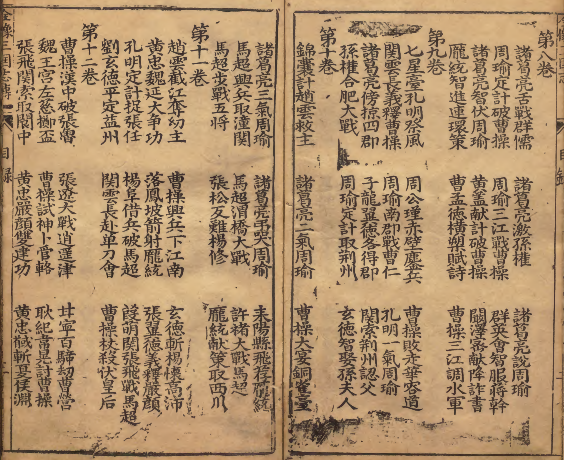 第八卷
諸葛亮舌戰群儒 諸葛亮激孫權 諸葛亮說周瑜
周瑜定計破曹操 周瑜三江戰曹操 群英會智服蔣幹
諸葛亮智伏周瑜 黃蓋献計破曹操 闞澤密献降詐書
龐統智進連環策 曹孟德橫槊賦詩 曹操三江調水軍
第九卷
七星臺孔明祭風 周公瑾赤壁鏖兵 曹操敗走華容道
関雲長義釋曹操 周瑜南郡戰曹仁 孔明一氣周瑜
諸葛亮傍掠四郡 子龍翼德各得郡 関索荆州認父
孫權合肥大戰 周瑜定計取荆州 玄德智娶孫夫人
第十卷
錦囊計趙雲救主 諸葛亮二氣周瑜 曹操大宴銅雀臺
諸葛亮三氣周瑜 諸葛亮弔哭周瑜 耒陽縣飛龐統
馬超興兵取潼関 馬超渭橋大戰 許褚大戰馬超
馬超步戰五將 張松反難楊修 龐統献策取西川
第十一卷
趙雲截江奪幼主 曹操興兵下江南 玄德斬楊懷高沛
黃忠魏延大争功 落鳳坡箭射龐統 張翼德義釋嚴顔
孔明定計捉張任 楊阜借兵破馬超 葭萌関張飛戰馬超
劉玄德平定益州 関雲長赴单刀會 曹操杖殺伏皇后
第十二卷
曹操漢中破張魯 張遼大戰逍遥津 甘寧百騎刼曹營
魏王宮左慈擲盃 曹操試神卜管輅 耿紀韋晃討曹操
張飛関索取閬中 黃忠嚴顔雙建功 黃忠馘斬夏侯淵
全像三國志傳
目錄